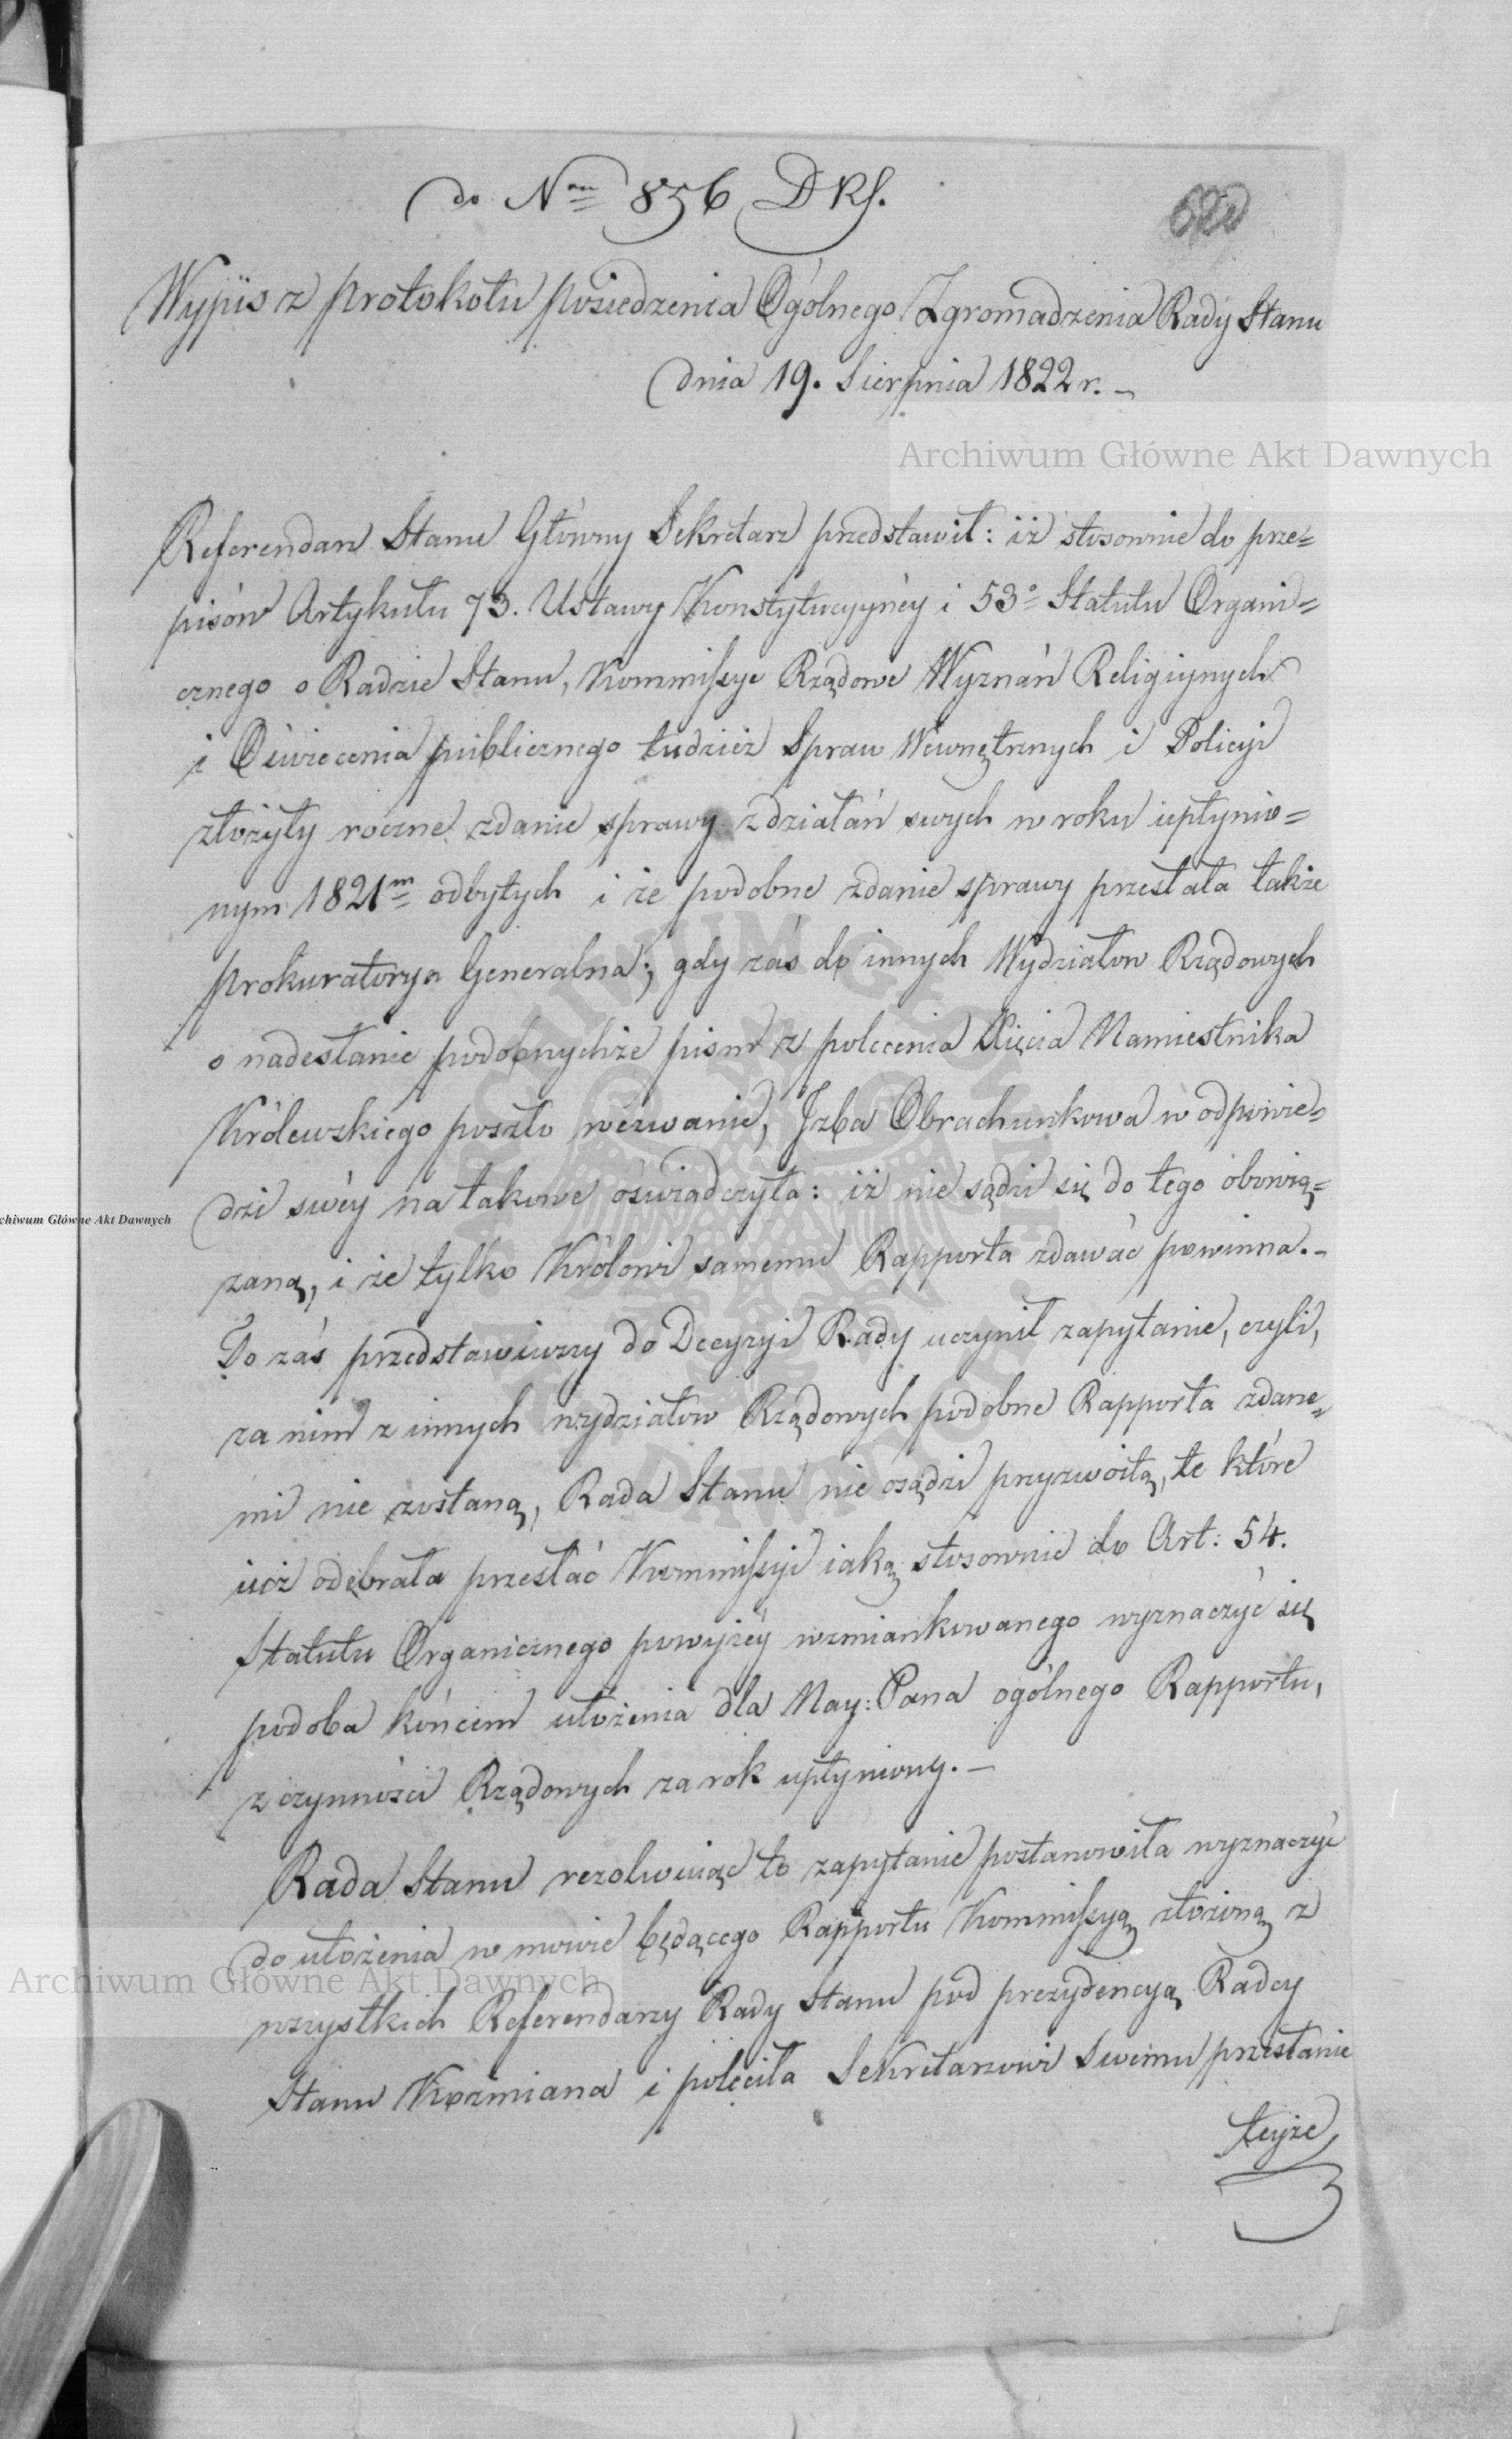 do Nru 856 DRS.
620
Wypis z protokołu posiedzenia Ogólnego Zgromadzenia Rady Stanu
dnia 19. Sierpnia 1822 r. –
Archiwum Główne Akt Dawnych
Referendarz Stanu Główny Sekretarz przedstawił: iż stosownie do prze=
pisów Artykułu 73. Ustawy Konstytucyynéy i 53º Statutu Organi=
cznego o Radzie Stanu, Kommissye Rządowe Wyznań Religiynych
i Oświecenia publicznego tudzież Spraw Wewnętrznych i Policyi
złożyły roczne zdanie sprawy z działań swych w roku upłynio=
nym 1821m odbytych i że podobne zdanie sprawy przesłała także
Prokuratorya Generalna; gdy zaś do innych Wydziałow Rządowych
o nadesłanie podobnychże pism z polecenia Xięcia Namiestnika
Królewskiego poszło wézwanie, Jzba Obrachunkowa w odpowie=
dzi swéy na takowe oświadczyła: iż nie sądzi się do tego obowią=
zaną, i że tylko Królowi samemu Rapporta zdawać powinna. –
To zaś przedstawiwszy do Decyzyi Rady uczynił zapytanie, czyli,
za nim z innych wydziałow Rządowych podobne Rapporta zdane=
mi nie zostaną, Rada Stanu nie osądzi przyzwoitą, te które
iuż odebrała przesłać Kommissyi iaką stosownie do Art: 54.
Statutu Organicznego powyżéy wzmiankowanego wyznaczyć się
podoba końcem ułożenia dla Nay: Pana ogólnego Rapportu,
z czynności Rządowych za rok upłyniony. –
Rada Stanu rezolwuiąc to zapytanie postanowiła wyznaczyć
do ułożenia w mowie będącego Rapportu Kommissyą złożoną z
wszystkich Referendarzy Rady Stanu pod prezydencyą Radcy
Stanu Koźmiana i poleciła Sekretarzowi Swemu przesłanie
teyże
Archiwum Główne Akt Dawnych
chiwum Główne Akt Dawnych